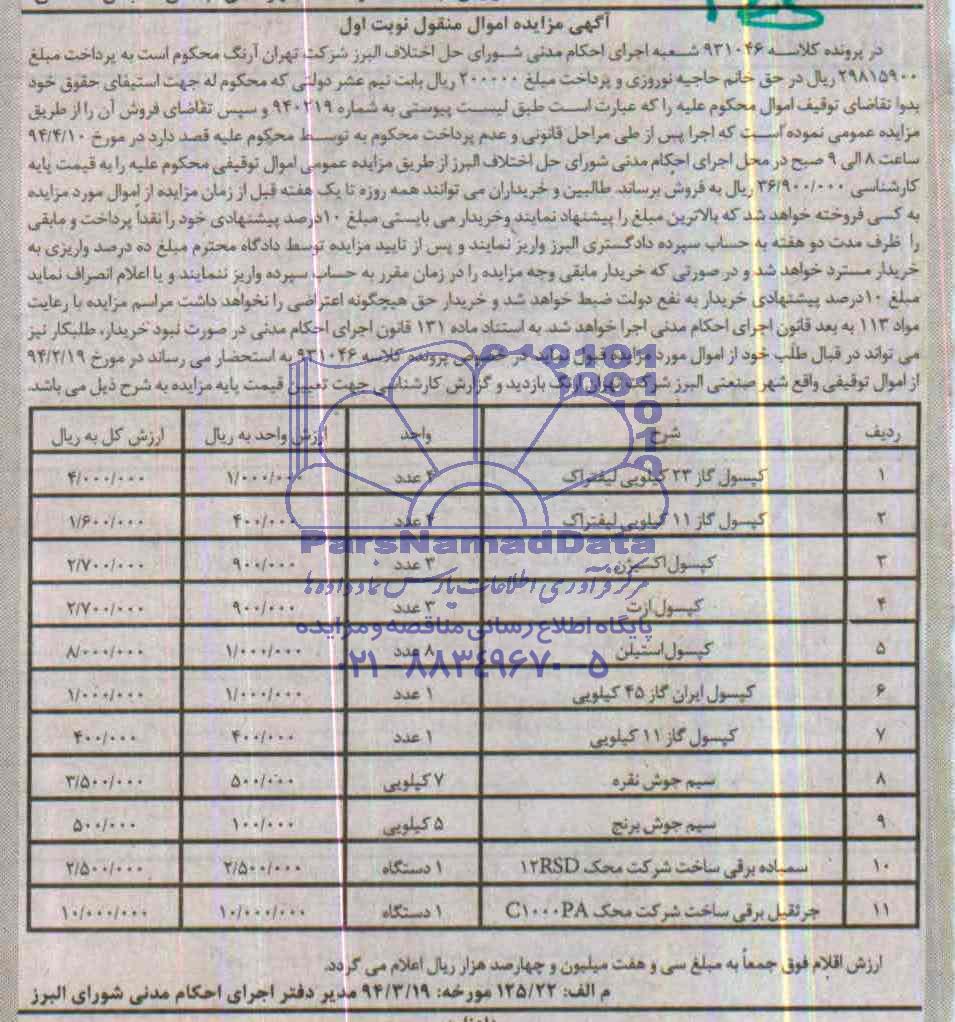 آگهی مزایده اموال منقول نوبت اول
در پرونده کلاسه ۹۳۱۰۴۶ شعبه اجرای احکام مدنی شورای حل اختلاف البرز شرکت تهران آرنگ محکوم است به پرداخت مبلغ
۲۹۸۱۵۹۰۰ ریال در حق خانم حاجیه نوروزی و پرداخت مبلغ ۲۰۰۰۰۰ ریال بابت نیم عشر دولتی که محکوم له جهت استیفای حقوق خود
بدوا تقاضای توقیف اموال محکوم علیه را که عبارت است طبق لیست پیوستی به شماره ۹۴۰۲۱۹ و سپس تقاضای فروش آن را از طریق
مزایده عمومی نموده است که اجرا پس از طی مراحل قانونی و عدم پرداخت محکوم به توسط محکوم علیه قصد دارد در مورخ ۹۴/۴/۱۰
ساعت ۸ الی ۹ صبح در محل اجرای احکام مدنی شورای حل اختلاف البرز از طریق مزایده عمومی اموال توقیفی محکوم علیه را به قیمت پایه
کارشناسی ۳۶/۹۰۰/۰۰۰ ریال به فروش برساند. طالبین و خریداران می توانند همه روزه تا یک هفته قبل از زمان مزایده از اموال مورد مزایده
به کسی فروخته خواهد شد که بالاترین مبلغ را پیشنهاد نمایند وخریدار می بایستی مبلغ ۱۰درصد پیشنهادی خود را نقدا پرداخت و مابقی
را ظرف مدت دو هفته به حساب سپرده دادگستری البرز واریز نمایند و پس از تایید مزایده توسط دادگاه محترم مبلغ ده درصد واریزی به
خریدار مسترد خواهد شد و در صورتی که خریدار مابقی وجه مزایده را در زمان مقرر به حساب سپرده واریز ننمایند و یا اعلام انصراف نماید
مبلغ ۱۰درصد پیشنهادی خریدار به نفع دولت ضبط خواهد شد و خریدار حق هیچگونه اعتراضی را نخواهد داشت مراسم مزایده با رعایت
مواد ۱۱۳ به بعد قانون اجرای احکام مدنی اجرا خواهد شد. به استناد ماده ۱۳۱ قانون اجرای احکام مدنی در صورت نبود خریدار، طلبکار نیز
می تواند در قبال طلب خود از اموال مورد مزایده قبول نماید. در خصوص پرونده کلاسه ۹۳۱۰۴۶ به استحضار می رساند در مورخ ۹۴/۲/۱۹
از اموال توقیفی واقع شهر صنعتی البرز شرکت تهران آرنگ بازدید و گزارش کارشناسی جهت تعیین قیمت پایه مزایده به شرح ذیل می باشد.
ردیف شرح واحد ارزش واحد به ریال ارزش کل به ریال
۱ کپسول گاز ۲۳ کیلویی لیفتراک ۴ عدد ۱/۰۰۰/۰۰۰ ۴/۰۰۰/۰۰۰
۲ کپسول گاز ۱۱ کیلویی لیفتراک ۴ عدد ۴۰۰/۰۰۰ ۱/۶۰۰/۰۰۰
۳ کپسول اکسیژن ۳ عدد ۹۰۰/۰۰۰ ۲/۷۰۰/۰۰۰
۴ کپسول ازت ۳ عدد ۹۰۰/۰۰۰ ۲/۷۰۰/۰۰۰
۵ کپسول استیلن ۸ عدد ۱/۰۰۰/۰۰۰ ۸/۰۰۰/۰۰۰
۶ کپسول ایران گاز ۴۵ کیلویی ۱ عدد ۱/۰۰۰/۰۰۰ ۱/۰۰۰/۰۰۰
۷ کپسول گاز ۱۱ کیلویی ۱ عدد ۴۰۰/۰۰۰ ۴۰۰/۰۰۰
۸ سیم جوش نقره ۷ کیلویی ۵۰۰/۰۰۰ ۳/۵۰۰/۰۰۰
۹ سیم جوش برنج ۵ کیلویی ۱۰۰/۰۰۰ ۵۰۰/۰۰۰
۱۰ سمباده برقی ساخت شرکت محک ۱۲RSD ۱ دستگاه ۲/۵۰۰/۰۰۰ ۲/۵۰۰/۰۰۰
۱۱ جرثقیل برقی ساخت شرکت محک C۱۰۰۰PA ۱ دستگاه ۱۰/۰۰۰/۰۰۰ ۱۰/۰۰۰/۰۰۰
ارزش اقلام فوق جمعاً به مبلغ سی و هفت میلیون و چهارصد هزار ریال اعلام می گردد.
م الف: ۱۲۵/۲۲ مورخه: ۹۴/۳/۱۹ مدیر دفتر اجرای احکام مدنی شورای البرز
ParsNamadData
مرکز فرآوری اطلاعات پارس نماد داده ها
پایگاه اطلاع رسانی مناقصه و مزایده
۰۲۱-۸۸۳۴۹۶۷۰-۵